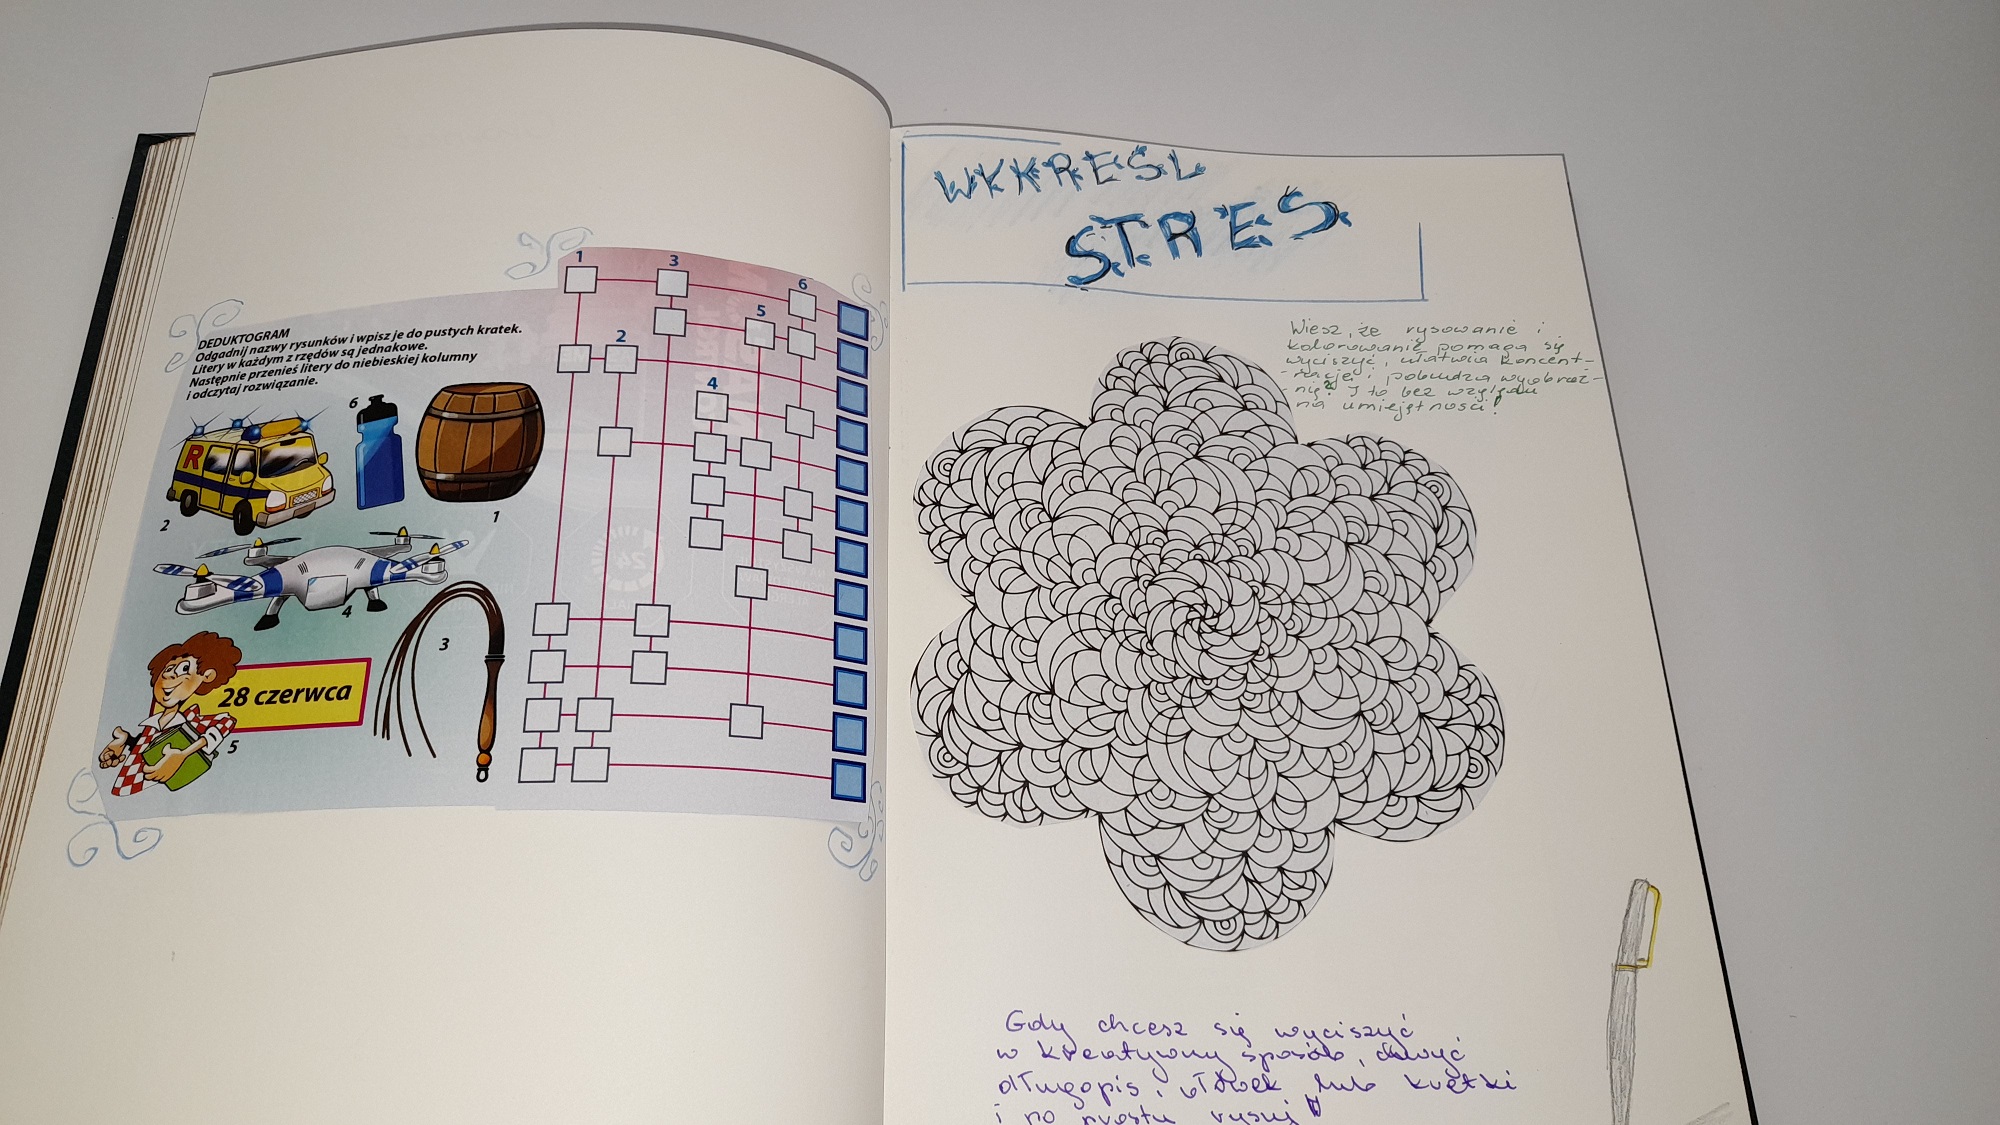 DEDUKTOGRAM
Odgadnij nazwy rysunków i wpisz je do pustych kratek.
Litery w każdym z rzędów są jednakowe.
Następnie przenieś litery do niebieskiej kolumny
i odczytaj rozwiązanie.
1
3
6
5
2
4
6
R
2
1
4
3
28 czerwca
5
WYKREŚL
STRES
Wiesz, że rysowanie i
kolorowanie pomaga się
wyciszyć, ułatwia koncent-
-rację i pobudza wyobraź-
-nię? I to bez względu
na umiejętności!
Gdy chcesz się wyciszyć
w kreatywny sposób, chwyć
długopis, ołówek lub kredki
i po prostu rysuj!